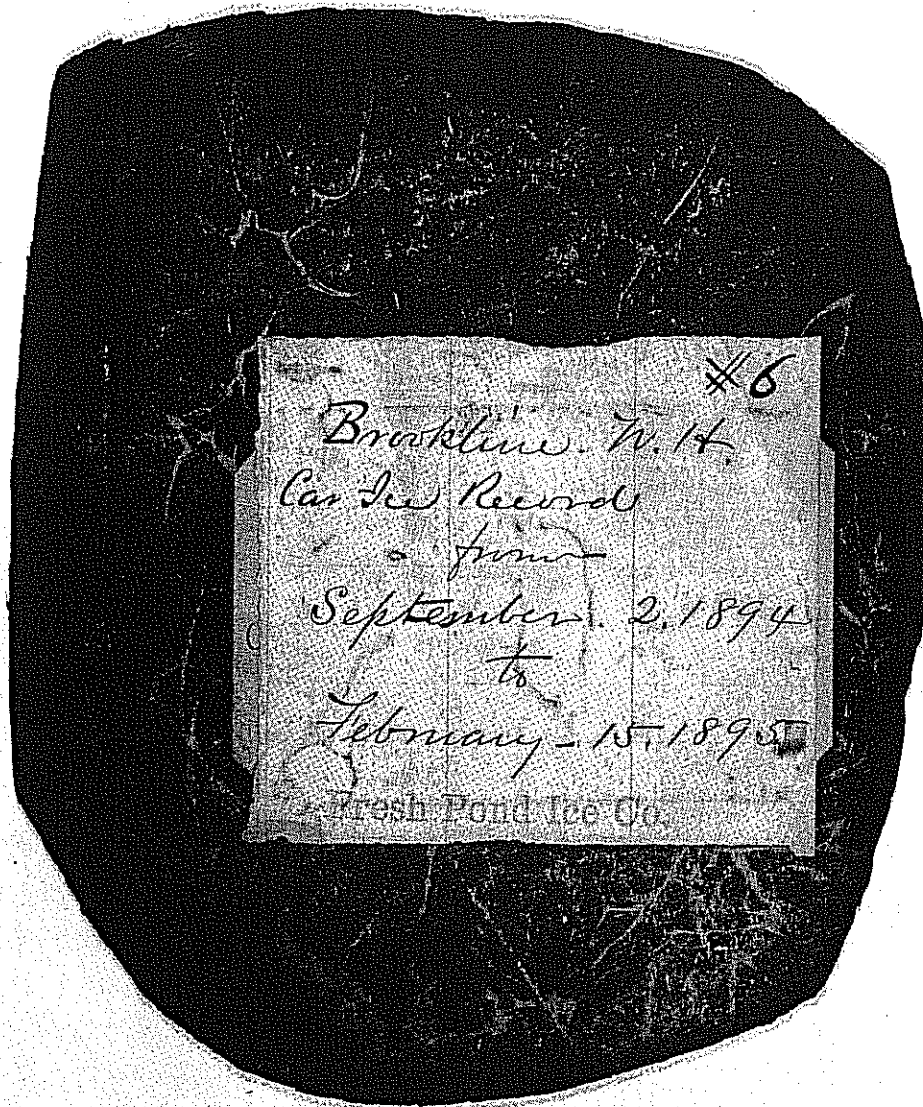 #6
Brookline. N. H.
Car Ice Record
from
September. 2. 1894
to
February - 15. 1895
Fresh Pond Ice Co.